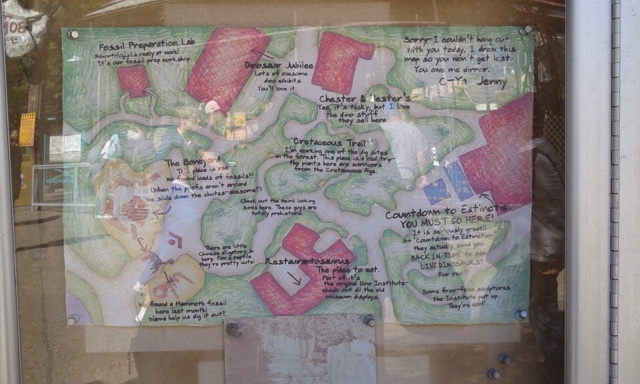 Fossil Preparation Lab
Paleontology really at work!
It's our fossil prep workshop.
Dinosaur Jubilee
Lots of awesome
dino exhibits.
You'll love it.
Sorry I couldn't hang out
with you today, I drew this
map so you won't get lost.
You owe me dinner.
Jenny
Chester & Hester's
Yes, it's tacky, but I love
the dino stuff
they sell here
Cretaceous Trail
I'm working one of the dig sites
in the forest. This place is a real trip-
the plants here are survivors
from the Cretaceous Age.
The Boneyard
This place is
loads of fossils!!
(When the profs aren't around
we slide down the chutes-awesome!)
Check out the weird looking
birds here. These guys are
totally prehistoric.
There are little
Chinese alligators in
here. For a reptile
they're pretty cute!
Restaurantosaurus
The place to eat.
Part of it's
the original Dino Institute-
check out all the old
museum displays.
Countdown to Extinction
YOU MUST GO HERE!
It is seriously great!!
At "Countdown to Extinction"
they actually send you
BACK IN TIME to see
LIVE DINOSAURS!
For real
Some free sculptures
the Institute put up.
They're cool!
We found a Mammoth fossil
here last month!
Wanna help us dig it out?